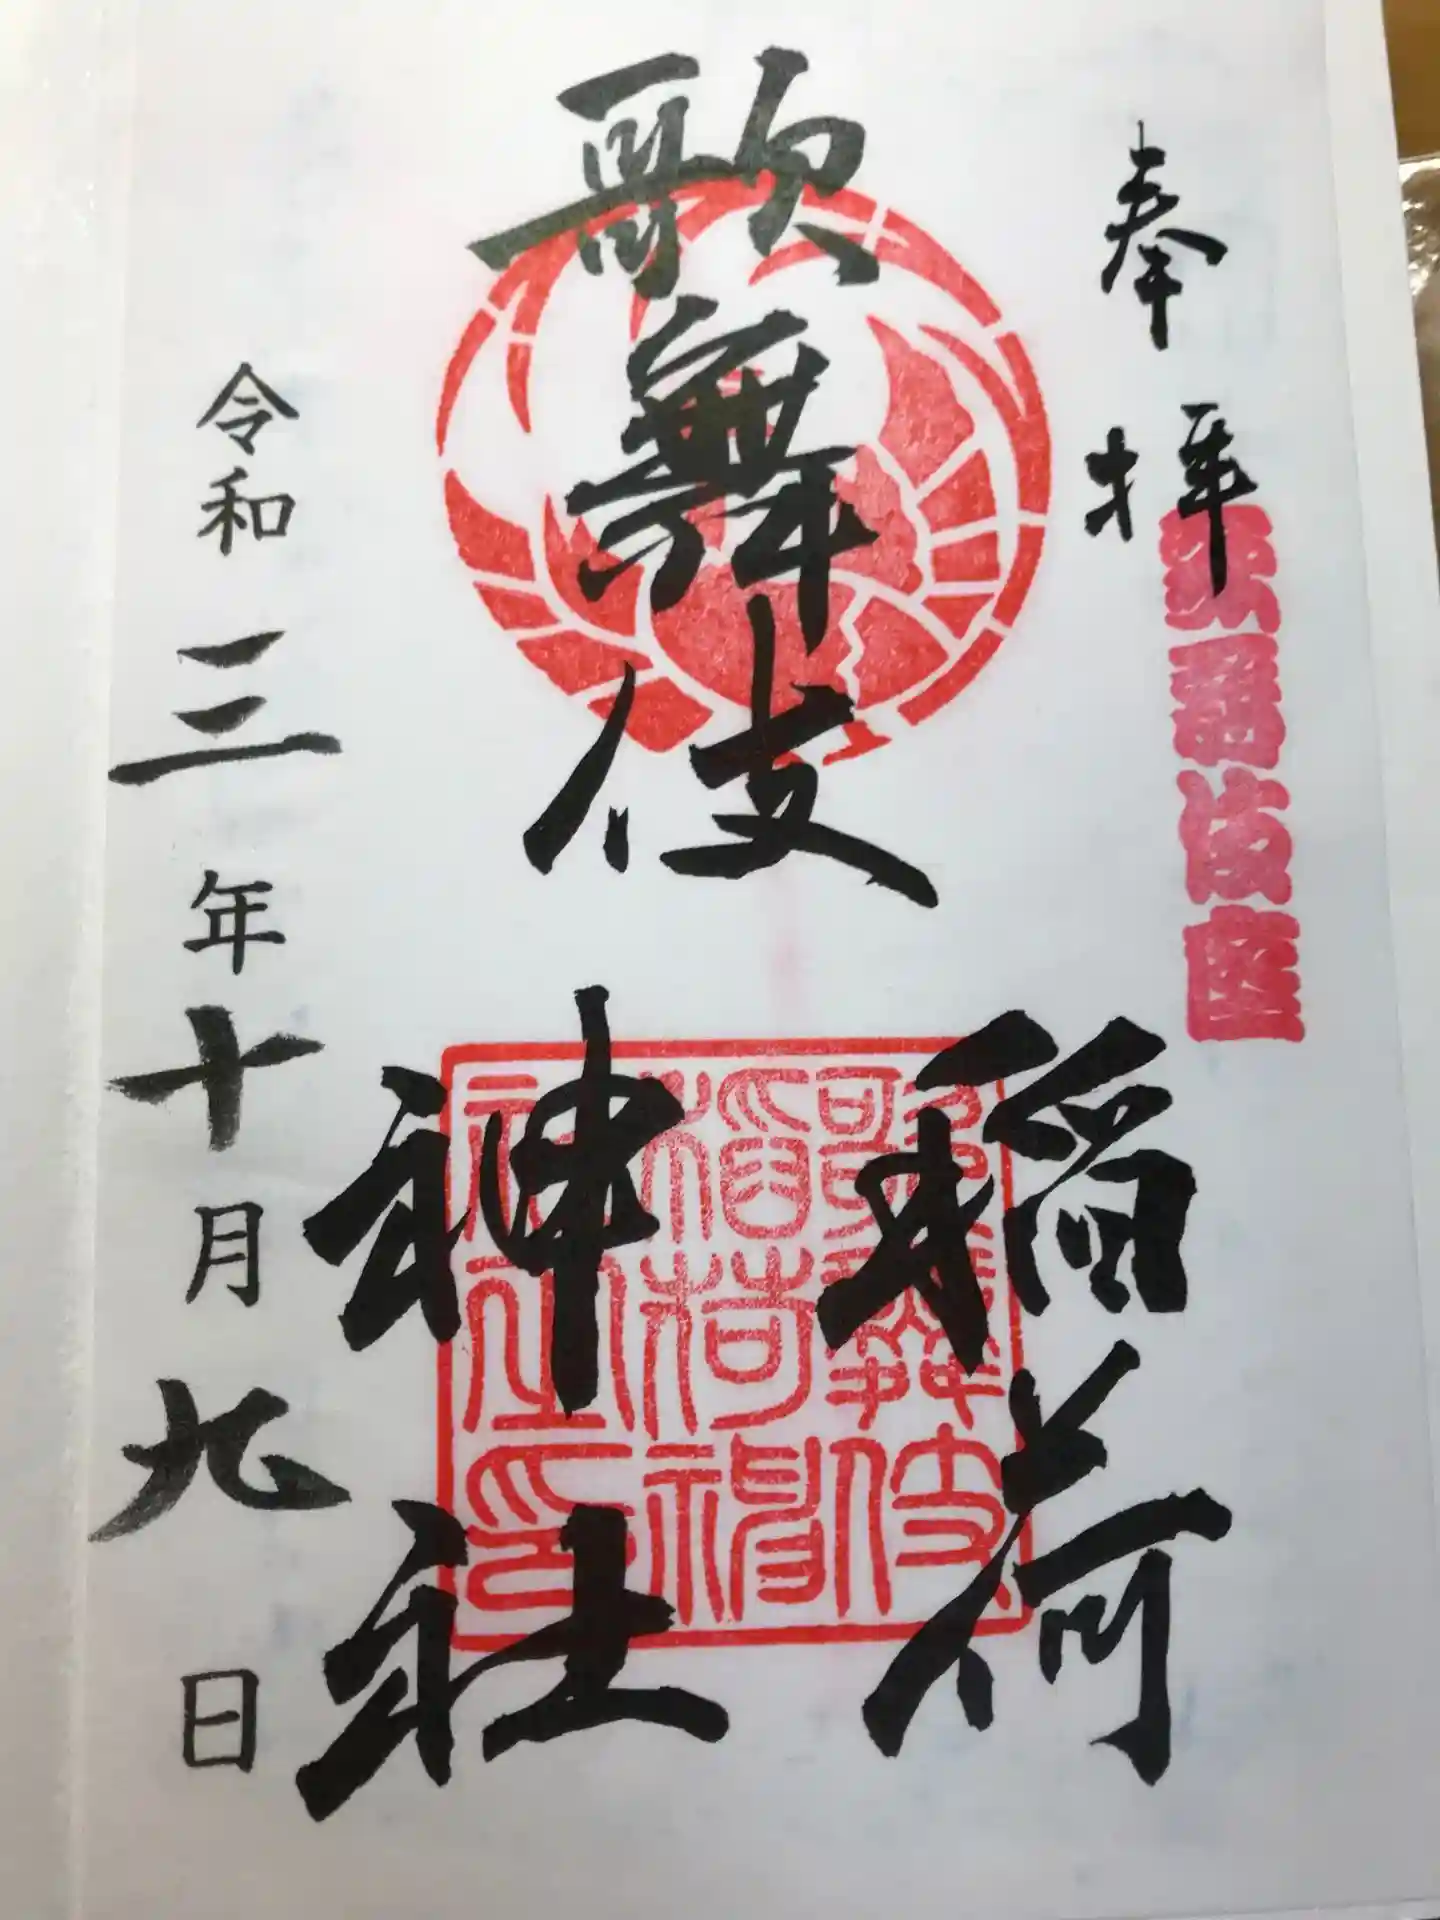 奉拝
歌舞伎座
歌舞伎
稲荷
神社
歌舞伎
稲荷神
社之印
令和三年十月九日